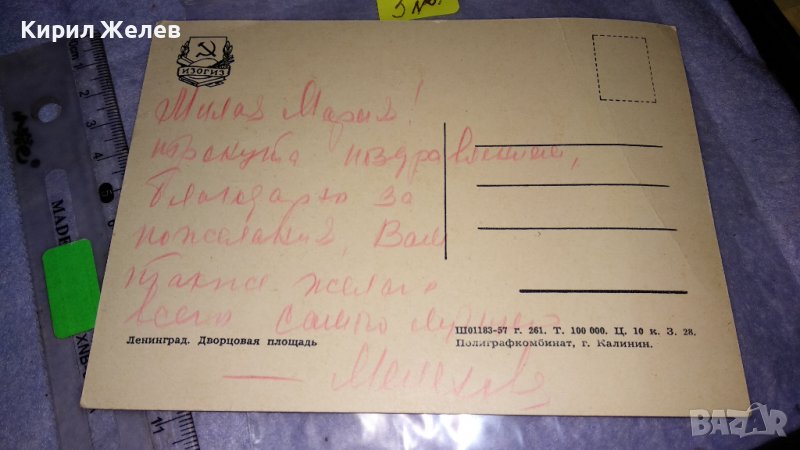 Кирил Желев
5 лв.
ИЗОГИЗ
Милая Мария!
поздравлением,
благодарю за
пожелания, Вам
также желаю
всего самого лучшего
Ш01183-57 г. 261. Т. 100 000. Ц. 10 к. З. 28.
Ленинград. Дворцовая площадь
Полиграфкомбинат, г. Калинин.
MADE
BAZAR